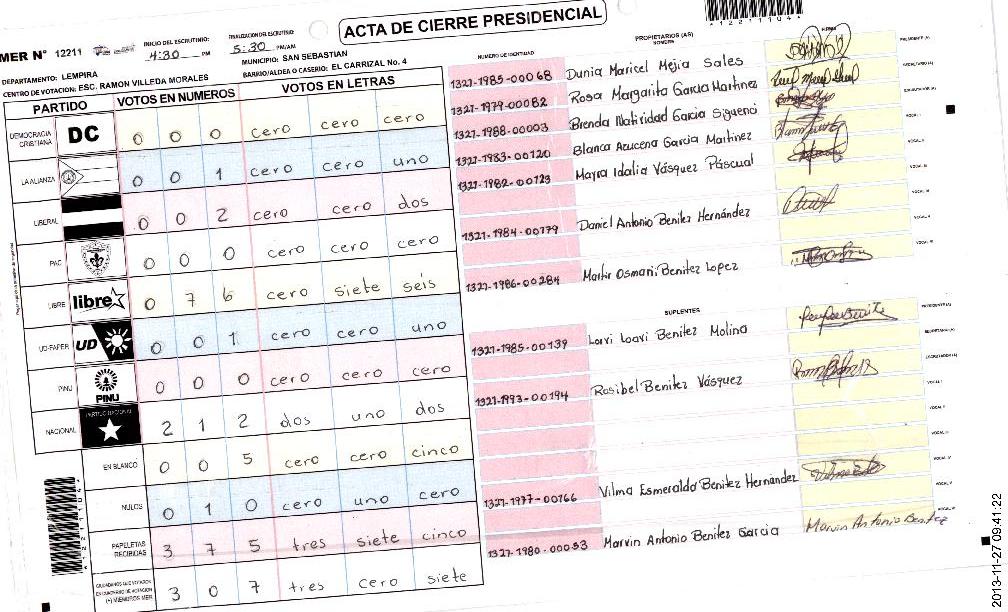 ACTA DE CIERRE PRESIDENCIAL
MER N° 12211
INICIO DEL ESCRUTINIO: 4:30 PM
FINALIZACION DE ESCRUTINIO: 5:30 PM/AM
DEPARTAMENTO: LEMPIRA
MUNICIPIO: SAN SEBASTIAN
CENTRO DE VOTACION: ESC. RAMON VILLEDA MORALES
BARRIO/ALDEA O CASERIO: EL CARRIZAL No. 4
PARTIDO VOTOS EN NUMEROS VOTOS EN LETRAS
DEMOCRACIA CRISTIANA DC 0 0 0 cero cero cero
LA ALIANZA 0 0 1 cero cero uno
LIBERAL 0 0 2 cero cero dos
PAC 0 0 0 cero cero cero
LIBRE libre 0 7 6 cero siete seis
UD-FAPER UD 0 0 1 cero cero uno
PINU PINU 0 0 0 cero cero cero
NACIONAL PARTIDO NACIONAL 2 1 2 dos uno dos
EN BLANCO 0 0 5 cero cero cinco
NULOS 0 1 0 cero uno cero
PAPELETAS RECIBIDAS 3 7 5 tres siete cinco
CIUDADANOS QUE VOTARON EN CUADERNO DE VOTACION (+) MIEMBROS MER 3 0 7 tres cero siete
NUMERO DE IDENTIDAD
PROPIETARIOS (AS)
NOMBRE
FIRMA
1327-1985-00068 Dunia Maricel Mejia Sales PRESIDENTE (A)
1327-1979-00082 Rosa Margarita Garcia Martinez SECRETARIO (A)
1327-1988-00003 Brenda Natividad Garcia Sigueno ESCRUTADOR (A)
1327-1983-00120 Blanca Azucena Garcia Martinez VOCAL I
1327-1982-00123 Mayra Idalia Vásquez Páscual VOCAL II
VOCAL III
1321-1984-00779 Daniel Antonio Benitez Hernández VOCAL IV
VOCAL V
1327-1986-00284 Martir Osmani Benitez Lopez VOCAL VI
SUPLENTES
1327-1985-00139 Lorvi Loavi Benitez Molina PRESIDENTE (A)
SECRETARIO (A)
1327-1993-00194 Rosibel Benitez Vásquez ESCRUTADOR (A)
VOCAL I
VOCAL II
VOCAL III
1327-1977-00166 Vilma Esmeralda Benitez Hernandez VOCAL IV
VOCAL V
1327-1980-00033 Marvin Antonio Benites Garcia Marvin Antonio Benitez VOCAL VI
2013-11-27 09:41:22